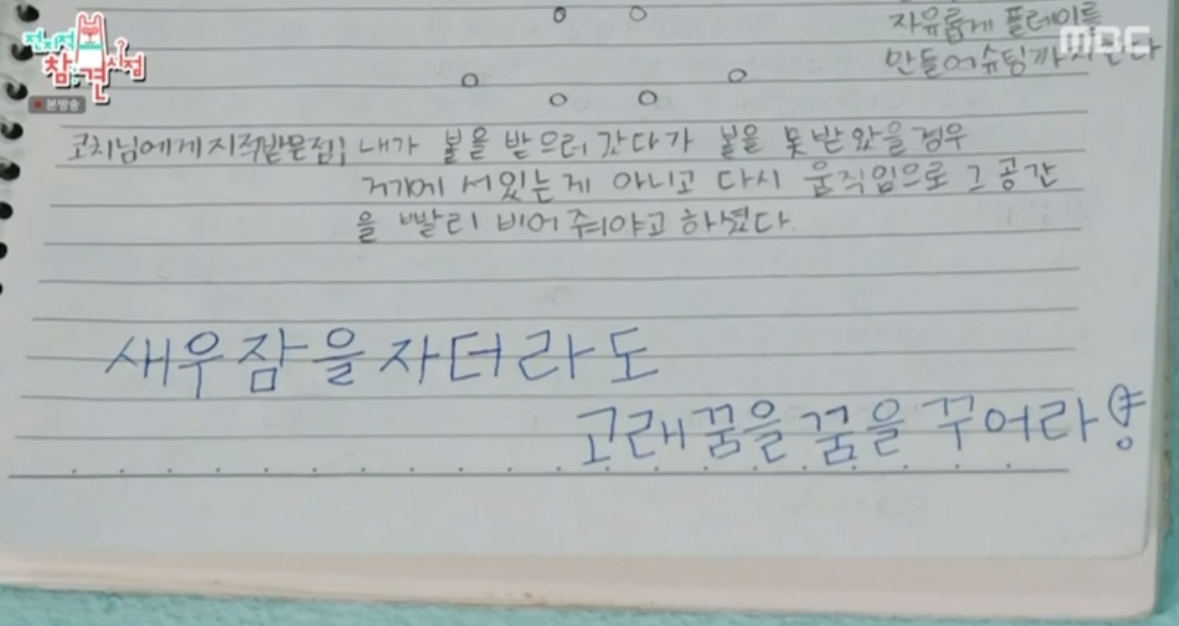 전지적
참견시점
본방송
MBC
자유롭게 플레이를
만들어 슈팅까지 한다
코치님에게 지적받은점; 내가 볼을 받으러 갔다가 볼을 못 받았을 경우
거기에 서있는게 아니고 다시 움직임으로 그 공간
을 빨리 비어 줘야고 하셨다.
새우잠을자더라도
고래꿈을 꿈을 꾸어라